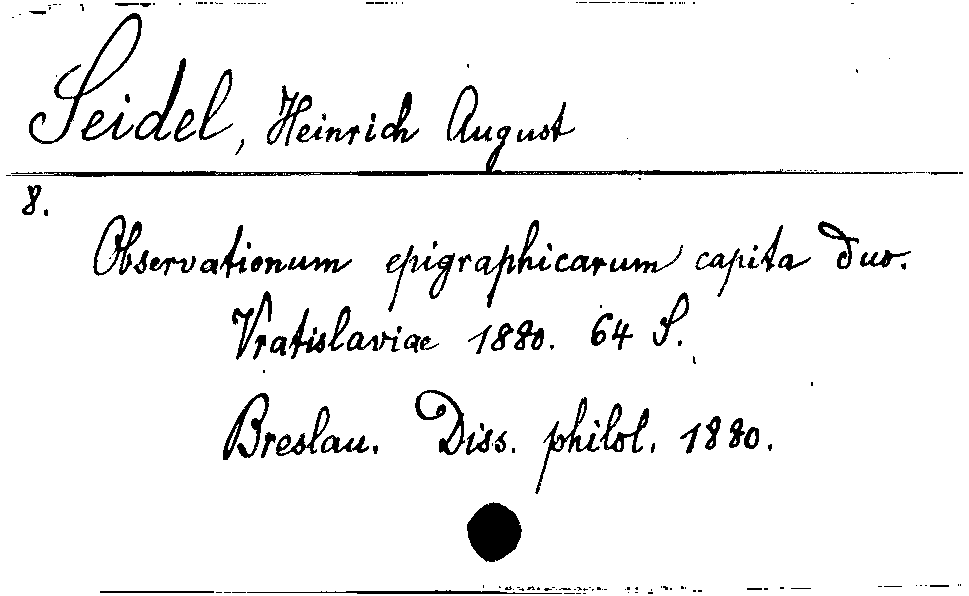 Seidel, Heinrich August
8.
Observationum epigraphicarum capita duo.
Vratislaviae 1880. 64 S.
Breslau. Diss. philol. 1880.